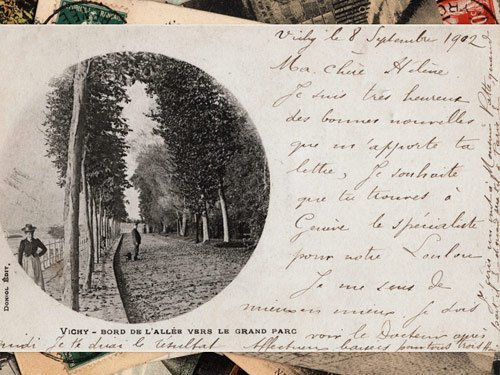 Vichy le 8 Septembre 1902
Ma chère Hélène
Je suis très heureux
des bonnes nouvelles
que m'apporte ta
lettre, Je souhaite
que tu trouves à
Genève le spécialiste
pour notre Loulou
Je me sens de
mieux en mieux. Je dois
voir le Docteur après
Je te dirai le résultat Affectueux baisers pour tous trois
VICHY - BORD DE L'ALLÉE VERS LE GRAND PARC